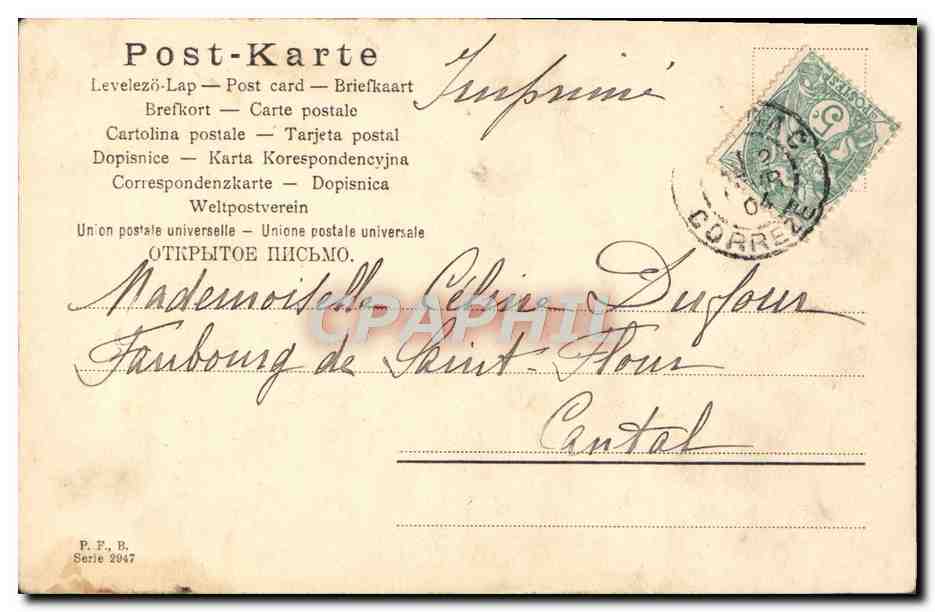 Post-Karte
Levelező-Lap — Post card — Briefkaart
Brefkort — Carte postale
Cartolina postale — Tarjeta postal
Dopisnice — Karta Korespondencyjna
Correspondenzkarte — Dopisnica
Weltpostverein
Union postale universelle — Unione postale universale
ОТКРЫТОЕ ПИСЬМО.
Imprimé
POSTES
5
2
04
CORREZE
Mademoiselle Céline Dufour
CPAPHIL
Faubourg de Saint-Flour
Cantal
P. F., B.
Serie 2947